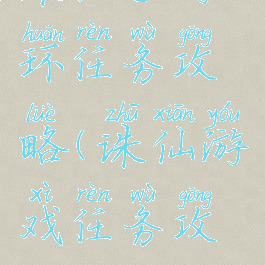 huán rèn wù gōng
环任务攻
lüè zhū xiān yóu
略(诛仙游
xì rèn wù gōng
戏任务攻